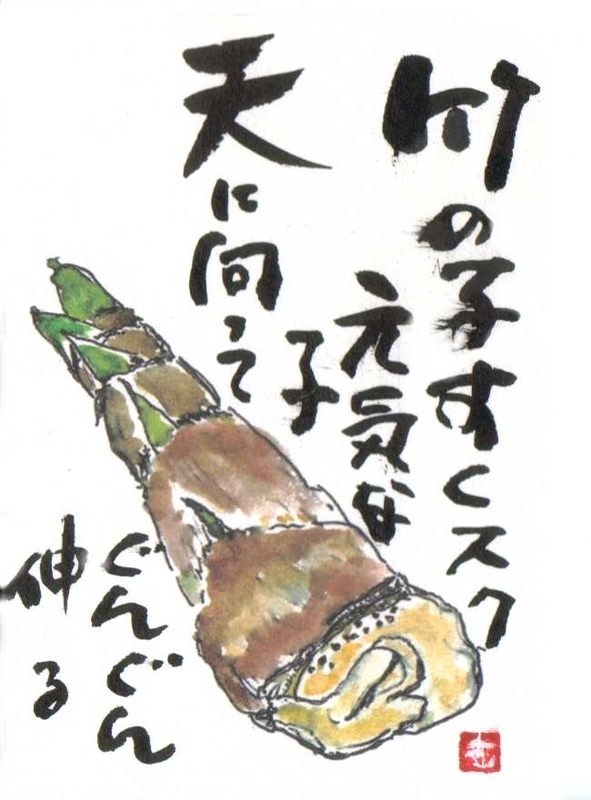 竹の子すくスク
元気な
子
天に向って
ぐんぐん
伸る